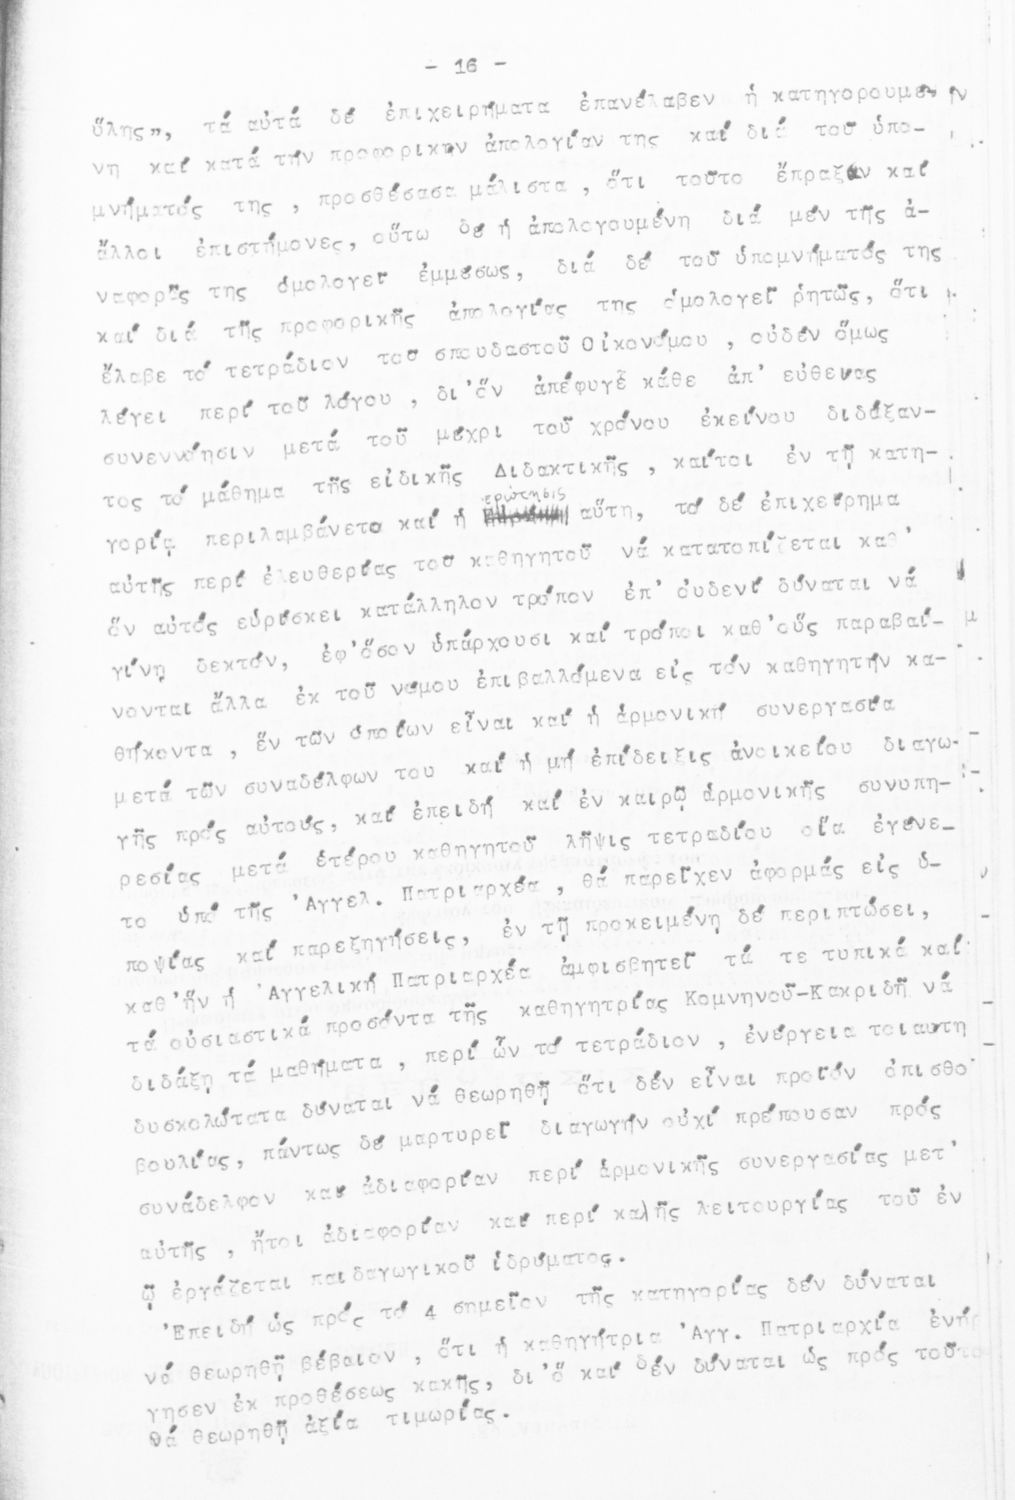 - 16 -
ὕλης", τά αὐτά δέ ἐπιχειρήματα ἐπανέλαβεν ἡ κατηγορουμέ-
νη καί κατά τήν προφορικήν ἀπολογίαν της καί διά τοῦ ὑπο-
μνήματός της , προσθέσασα μάλιστα , ὅτι τοῦτο ἔπραξαν καί
ἄλλοι ἐπιστήμονες, οὕτω δέ ἡ ἀπολογουμένη διά μέν τῆς ἀ-
ναφορᾶς της ὁμολογεῖ ἐμμέσως, διά δέ τοῦ ὑπομνήματός της
καί διά τῆς προφορικῆς ἀπολογίας της ὁμολογεῖ ῥητῶς, ὅτι
ἔλαβε τό τετράδιον τοῦ σπουδαστοῦ Οἰκονόμου , οὐδέν ὅμως
λέγει περί τοῦ λόγου , δι'ὅν ἀπέφυγε κάθε ἀπ' εὐθείας
συνεννόησιν μετά τοῦ μέχρι τοῦ χρόνου ἐκείνου διδάξαν-
τος τό μάθημα τῆς εἰδικῆς Διδακτικῆς , καίτοι ἐν τῇ κατη-
γορίᾳ περιλαμβάνετο καί ἡ ἐρώτησις αὕτη, τό δέ ἐπιχείρημα
αὐτῆς περί ἐλευθερίας τοῦ καθηγητοῦ νά κατατοπίζεται καθ'
ὅν αὐτός εὑρίσκει κατάλληλον τρόπον ἐπ' οὐδενί δύναται νά
γίνῃ δεκτόν, ἐφ'ὅσον ὑπάρχουσι καί τρόποι καθ'οὕς παραβαί-
νονται ἄλλα ἐκ τοῦ νόμου ἐπιβαλλόμενα εἰς τόν καθηγητήν κα-
θήκοντα , ἕν τῶν ὁποίων εἶναι καί ἡ ἁρμονική συνεργασία
μετά τῶν συναδέλφων του καί ἡ μή ἐπίδειξις ἀνοικείου διαγω-
γῆς πρός αὐτούς, καί ἐπειδή καί ἐν καιρῷ ἁρμονικῆς συνυπη-
ρεσίας μετά ἑτέρου καθηγητοῦ λῆψις τετραδίου οἵα ἐγένε-
το ὑπό τῆς 'Αγγελ. Πατριαρχέα , θά παρεῖχεν ἀφορμάς εἰς ὑ-
ποψίας καί παρεξηγήσεις, ἐν τῇ προκειμένῃ δέ περιπτώσει,
καθ'ἥν ἡ 'Αγγελική Πατριαρχέα ἀμφισβητεῖ τά τε τυπικά καί
τά οὐσιαστικά προσόντα τῆς καθηγητρίας Κομνηνοῦ-Κακριδῆ νά
διδάξῃ τά μαθήματα , περί ὧν τό τετράδιον , ἐνέργεια τοιαύτη
δυσκολώτατα δύναται νά θεωρηθῇ ὅτι δέν εἶναι προϊόν ὀπισθο
βουλίας, πάντως δέ μαρτυρεῖ διαγωγήν οὐχί πρέπουσαν πρός
συνάδελφον καί ἀδιαφορίαν περί ἁρμονικῆς συνεργασίας μετ'
αὐτῆς , ἤτοι ἀδιαφορίαν καί περί καλῆς λειτουργίας τοῦ ἐν
ᾧ ἐργάζεται παιδαγωγικοῦ ἱδρύματος.
'Επειδή ὡς πρός τό 4 σημεῖον τῆς κατηγορίας δέν δύναται
νά θεωρηθῇ βέβαιον , ὅτι ἡ καθηγήτρια 'Αγγ. Πατριαρχέα ἐνήρ
γησεν ἐκ προθέσεως κακῆς, δι'ὅ καί δέν δύναται ὡς πρός τοῦτο
νά θεωρηθῇ ἀξία τιμωρίας.